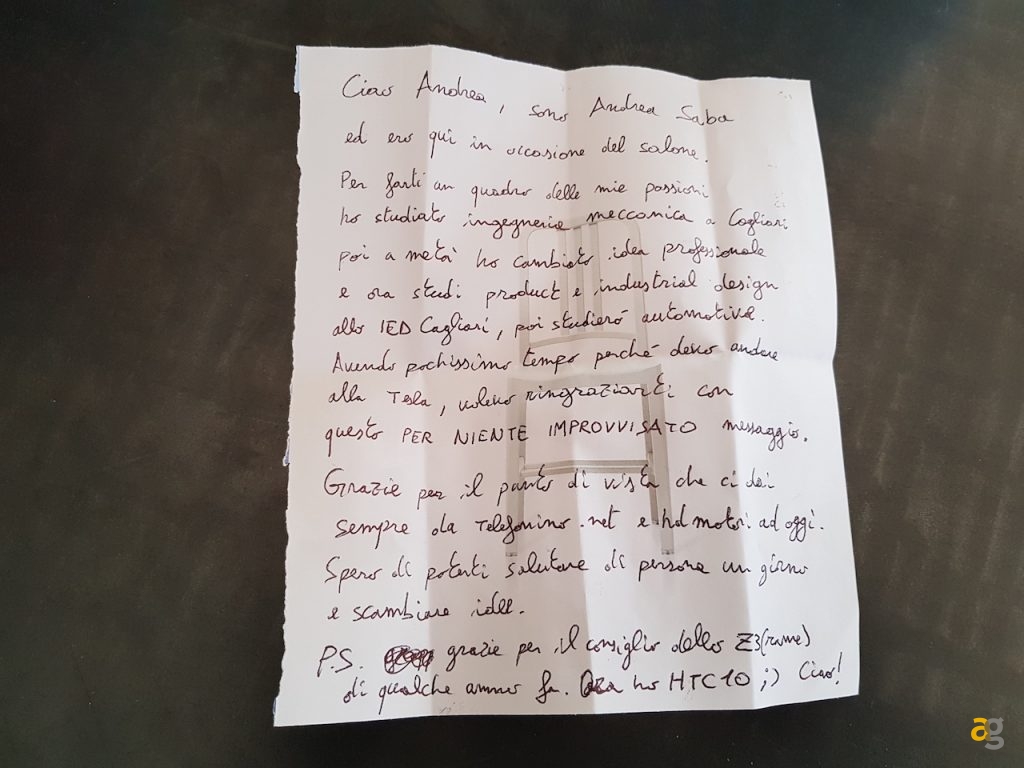 Ciao Andrea, sono Andrea Saba
ed ero qui in occasione del salone.
Per farti un quadro delle mie passioni
ho studiato ingegneria meccanica a Cagliari
poi a metà ho cambiato idea professionale
e ora studi product e industrial design
allo IED Cagliari, poi studierò automotive.
Avendo pochissimo tempo perché devo andare
alla Tesla, volevo ringraziarti con
questo PER NIENTE IMPROVVISATO messaggio.
Grazie per il punto di vista che ci dai
sempre da Telefonino.net e hd motori ad oggi.
Spero di poterti salutare di persona un giorno
e scambiare idee.
P.S. grazie per il consiglio dello Z3(rame)
di qualche anno fa. Ora ho HTC10 ;) Ciao!
ag